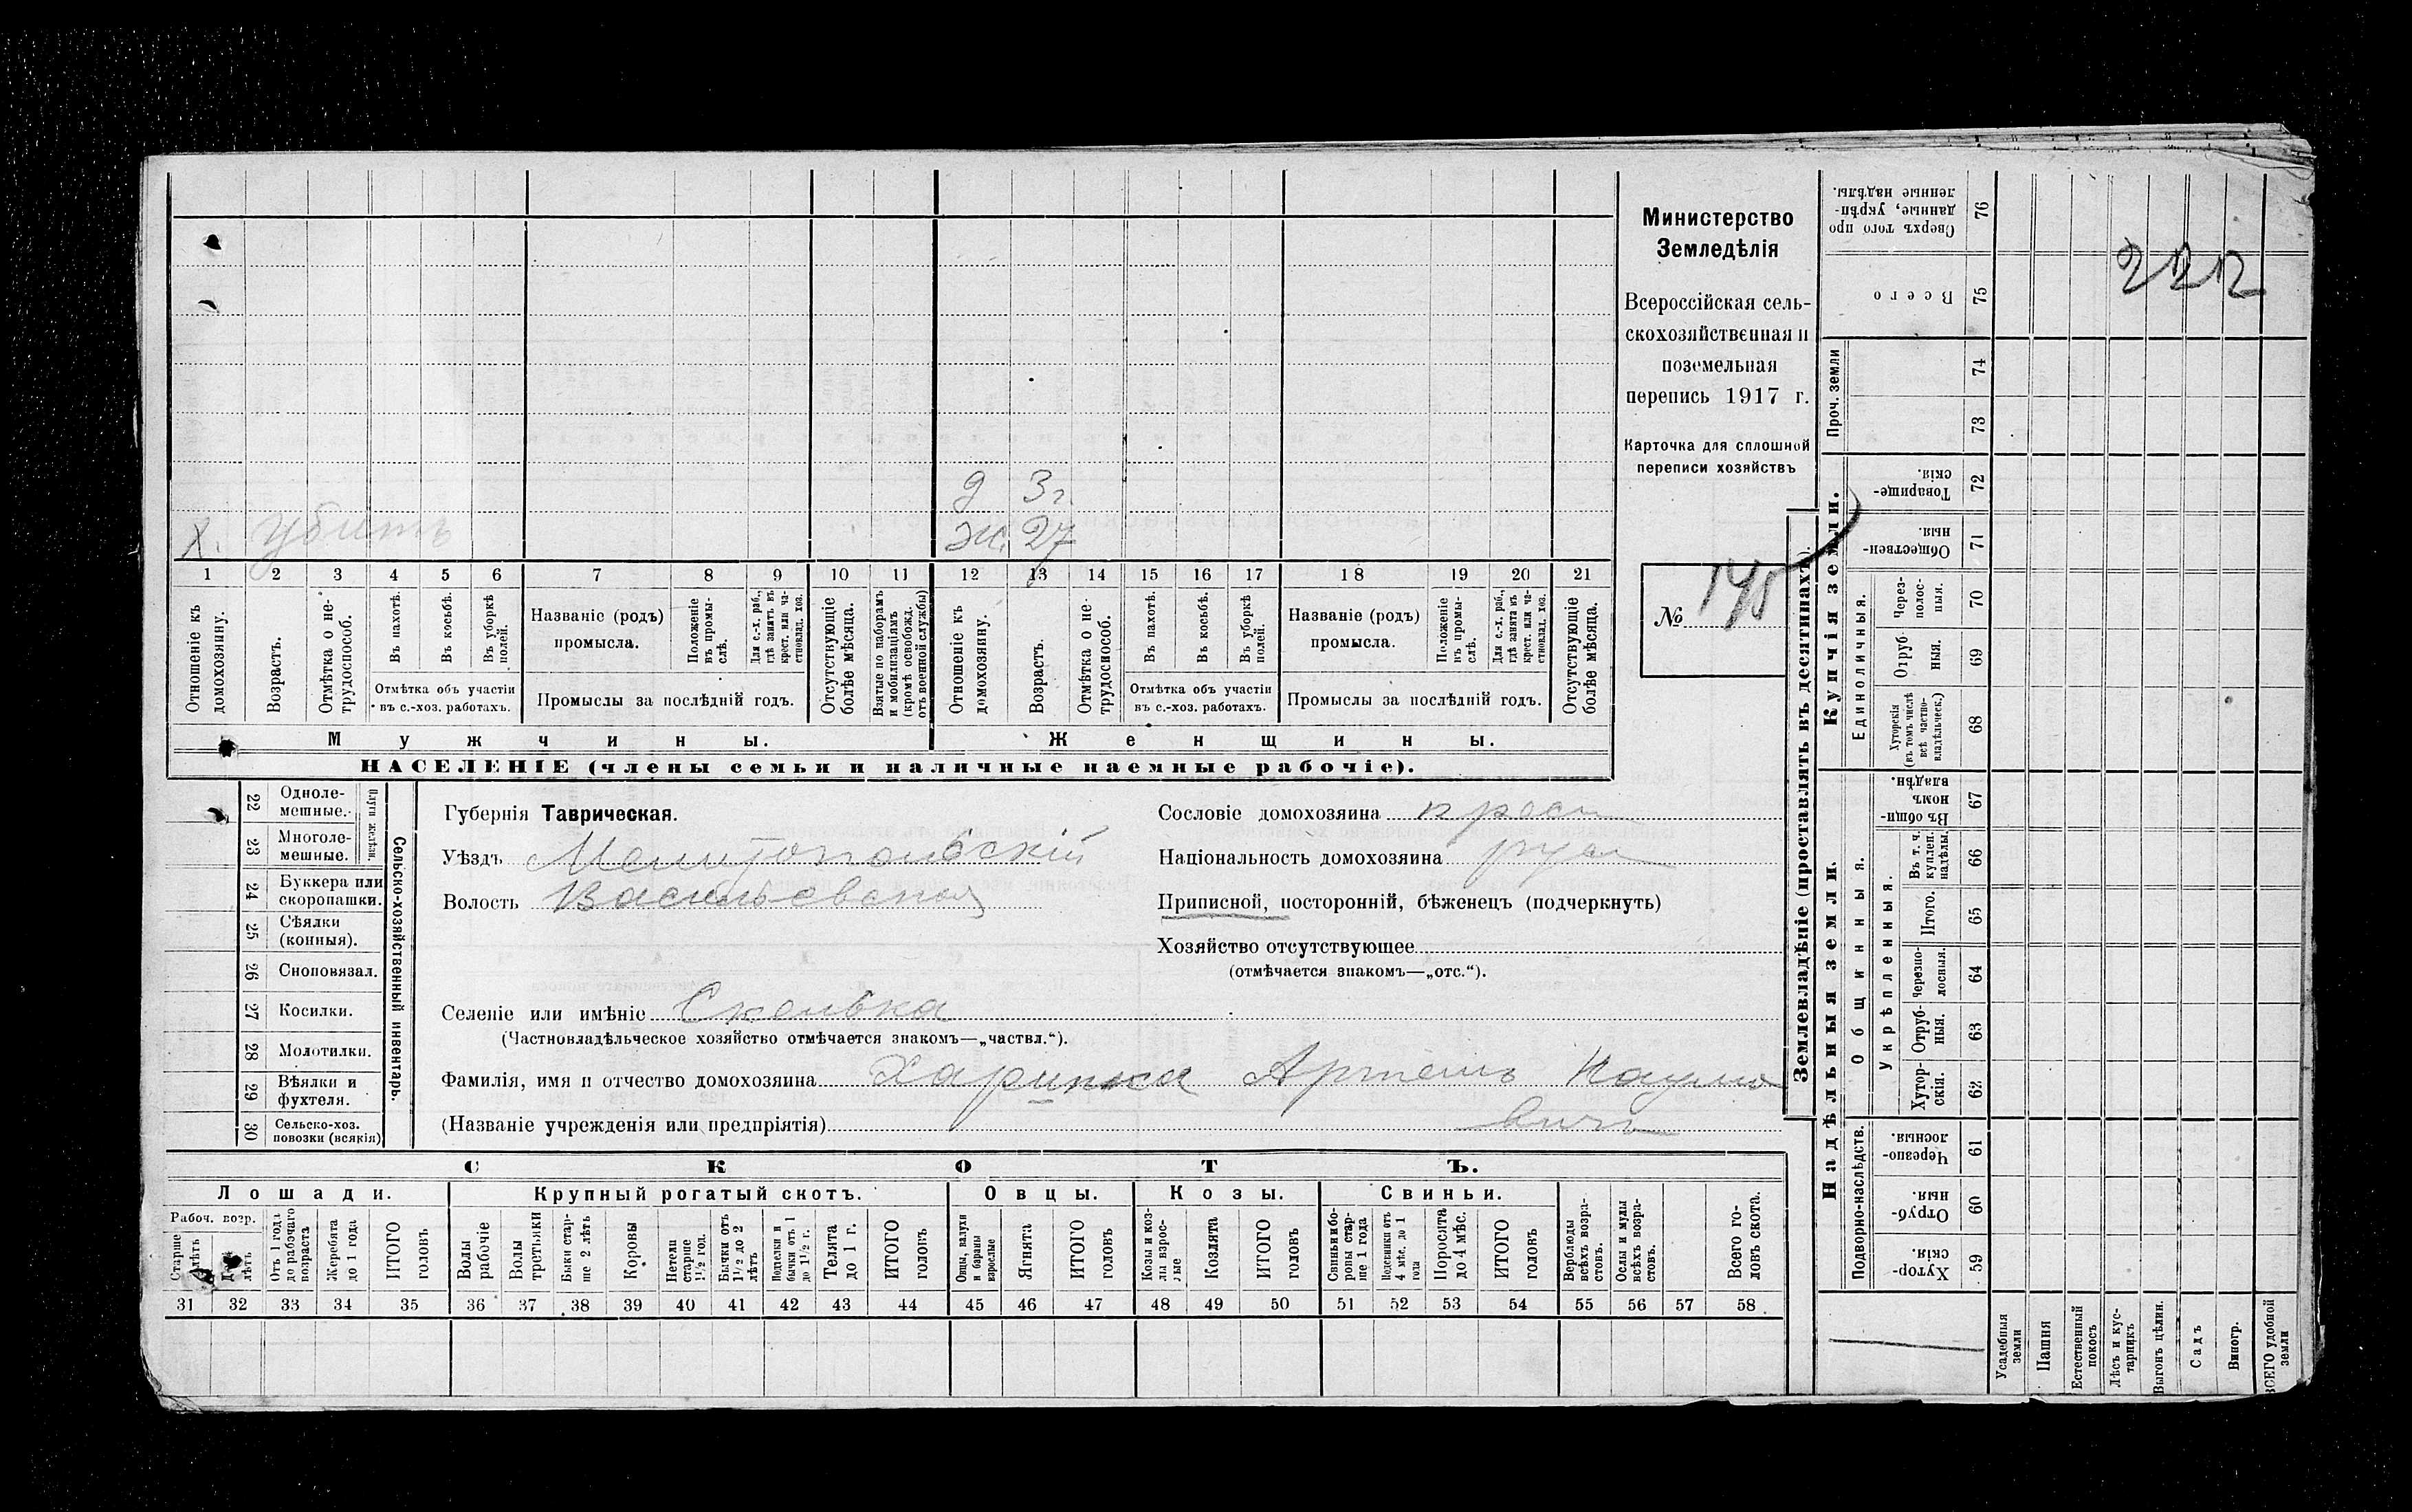 д 3 г.
х. убитъ ж. 27
1 2 3 4 5 6 7 8 9 10 11 12 13 14 15 16 17 18 19 20 21
Отношеніе къ домохозяину.
Возрастъ.
Отмѣтка о не-
трудоспособ.
Въ пахотѣ.
Въ косьбѣ.
Въ уборкѣ
полей.
Отмѣтка объ участіи
въ с.-хоз. работахъ.
Названіе (родъ)
промысла.
Положеніе
въ промы-
слѣ.
Для с.-х. раб.,
гдѣ занятъ въ
крест. или ча-
стновлад. хоз.
Промыслы за послѣдній годъ.
Отсутствующіе
болѣе мѣсяца.
Взятые по наборамъ
и мобилизаціямъ
(кромѣ освобожд.
отъ военной службы)
Отношеніе къ
домохозяину.
Возрастъ.
Отмѣтка о не-
трудоспособ.
Въ пахотѣ.
Въ косьбѣ.
Въ уборкѣ
полей.
Отмѣтка объ участіи
въ с.-хоз. работахъ.
Названіе (родъ)
промысла.
Положеніе
въ промы-
слѣ.
Для с.-х. раб.,
гдѣ занята въ
крест. или ча-
стновлад. хоз.
Промыслы за послѣдній годъ.
Отсутствующіе
болѣе мѣсяца.
Мужчины. Женщины.
НАСЕЛЕНІЕ (члены семьи и наличные наемные рабочіе).
Министерство
Земледѣлія
Всероссійская сель-
скохозяйственная и
поземельная
перепись 1917 г.
Карточка для сплошной
переписи хозяйствъ
№ 145
22 Одноле-
мешные.
23 Многоле-
мешные.
Плуги желѣзн.
24 Буккера или
скоропашки.
25 Сѣялки
(конныя).
26 Сноповязал.
27 Косилки.
28 Молотилки.
29 Вѣялки и
фухтеля.
30 Сельско-хоз.
повозки (всякія)
Сельско-хозяйственный инвентарь.
Губернія Таврическая.
Уѣздъ Мелитопольскій
Волость Васильевская
Селеніе или имѣніе Скелька
(Частновладѣльческое хозяйство отмѣчается знакомъ—„частвл.“).
Фамилія, имя и отчество домохозяина Харипка Артемъ Наумо
(Названіе учрежденія или предпріятія) вичъ
Сословіе домохозяина крест
Національность домохозяина рус
Приписной, посторонній, бѣженецъ (подчеркнуть)
Хозяйство отсутствующее
(отмѣчается знакомъ—„отс.“).
СКОТЪ.
Лошади. Крупный рогатый скотъ. Овцы. Козы. Свиньи.
Рабоч. возр.
Старше
лѣтъ
До
лѣтъ
Отъ 1 года
до рабочаго
возраста
Жеребята
до 1 года
ИТОГО
головъ
Волы
рабочіе
Волы
третьяки
Быки стар-
ше 2 лѣтъ
Коровы
Нетели
старше
1½ год.
Бычки отъ
1½ до 2
лѣтъ
Подтелки и
бычки отъ 1
до 1½ г.
Телята
до 1 г.
ИТОГО
головъ
Овцы, валухи
и бараны
взрослые
Ягнята
ИТОГО
головъ
Козы и коз-
лы взрос-
лые
Козлята
ИТОГО
головъ
Свиньи и бо-
ровы стар-
ше 1 года
Подсвинки отъ
4 мѣс. до 1
года
Поросята
до 4 мѣс.
ИТОГО
головъ
Верблюды
всѣхъ возра-
стовъ.
Ослы и мулы
всѣхъ возра-
стовъ.
Всего го-
ловъ скота.
31 32 33 34 35 36 37 38 39 40 41 42 43 44 45 46 47 48 49 50 51 52 53 54 55 56 57 58
222
Землевладѣніе (проставлять въ десятинахъ).
Надѣльныя земли. Купчія земли.
Проч. земли
Подворно-наслѣдств.
Общинныя.
Укрѣпленныя.
Единоличныя.
Хутор-
скія. 59
Отруб-
ныя. 60
Черезпо-
лосныя. 61
Хутор-
скія. 62
Отруб-
ныя. 63
Черезпо-
лосныя. 64
Итого. 65
Въ т. ч.
куплен.
надѣлы. 66
Въ общи-
номъ
владѣн. 67
Хуторскія
(въ томъ числѣ
всѣ частно-
владѣльческ.) 68
Отруб
ныя. 69
Через-
полос-
ныя. 70
Обществен-
ныя 71
Товарище-
скія. 72
73
74
Всего 75
Сверхъ того про
данные, укрѣп-
ленные надѣлы. 76
Усадебныя
земли
Пашня
Естественный
покосъ
Лѣсъ и кус-
тарникъ
Выгонъ цѣлин.
Садъ
Виногр.
ВСЕГО удобной
земли